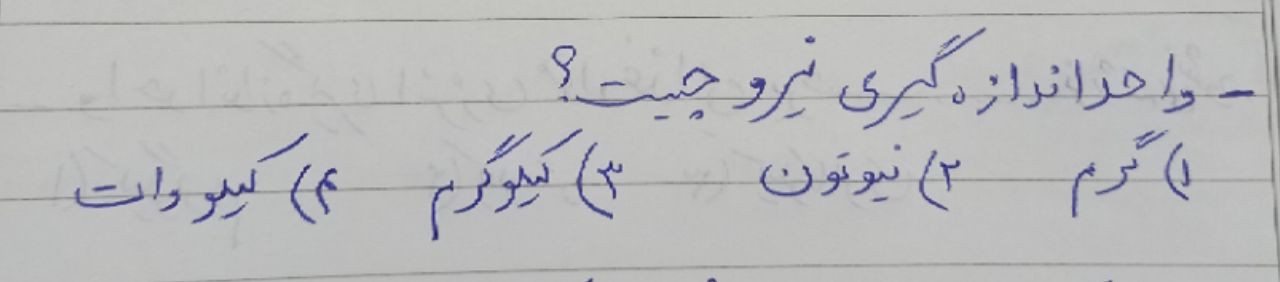 - واحد اندازه گیری نیرو چیست؟
۱) گرم ۲) نیوتون ۳) کیلوگرم ۴) کیلو وات